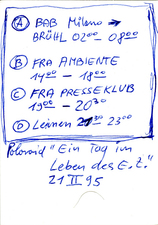 Ⓐ BAB Milano →
BRÜHL 02⁰⁰ 08⁰⁰
Ⓑ FRA AMBIENTE
14⁰⁰ – 18⁰⁰
Ⓒ FRA PRESSEKLUB
19⁰⁰ – 20³⁰
Ⓓ Leinen 23⁰⁰
Polaroid "Ein Tag im
Leben des E.Z."
21 II 95